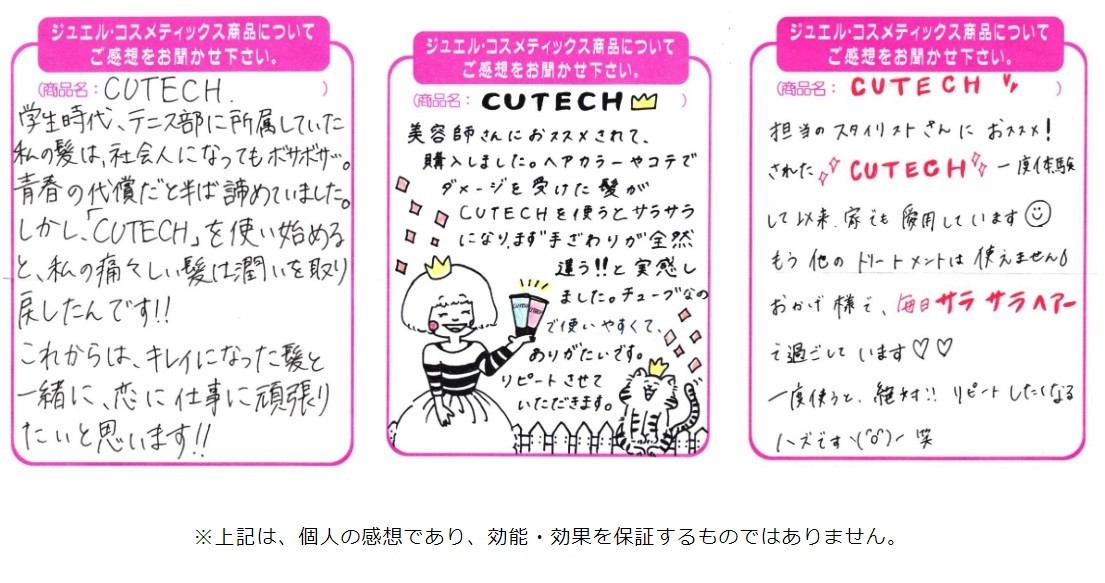 ジュエル・コスメティックス商品について
ご感想をお聞かせ下さい。
(商品名: CUTECH. )
学生時代、テニス部に所属していた
私の髪は、社会人になってもボサボサ…。
青春の代償だと半ば諦めていました。
しかし、「CUTECH」を使い始める
と、私の痛々しい髪は潤いを取り
戻したんです!!
これからは、キレイになった髪と
一緒に、恋に仕事に頑張り
たいと思います!!
ジュエル・コスメティックス商品について
ご感想をお聞かせ下さい。
(商品名: CUTECH )
美容師さんにおススメされて、
購入しました。ヘアカラーやコテで
ダメージを受けた髪が
CUTECHを使うとサラサラ
になります"手ざわりが全然
違う!!と実感し
ました。チューブなの
で使いやすくて、
ありがたいです。
リピートさせて
いただきます。
ジュエル・コスメティックス商品について
ご感想をお聞かせ下さい。
(商品名: CUTECH )
担当のスタイリストさんに おススメ!
された CUTECH 一度体験
して以来、家でも愛用しています
もう他のトリートメントは使えません!
おかげ様で、毎日サラサラヘアー
で過ごしています♡♡
一度使うと、絶対!! リピートしたくなる
ハズですヽ(°o°)ノ 笑
※上記は、個人の感想であり、効能・効果を保証するものではありません。